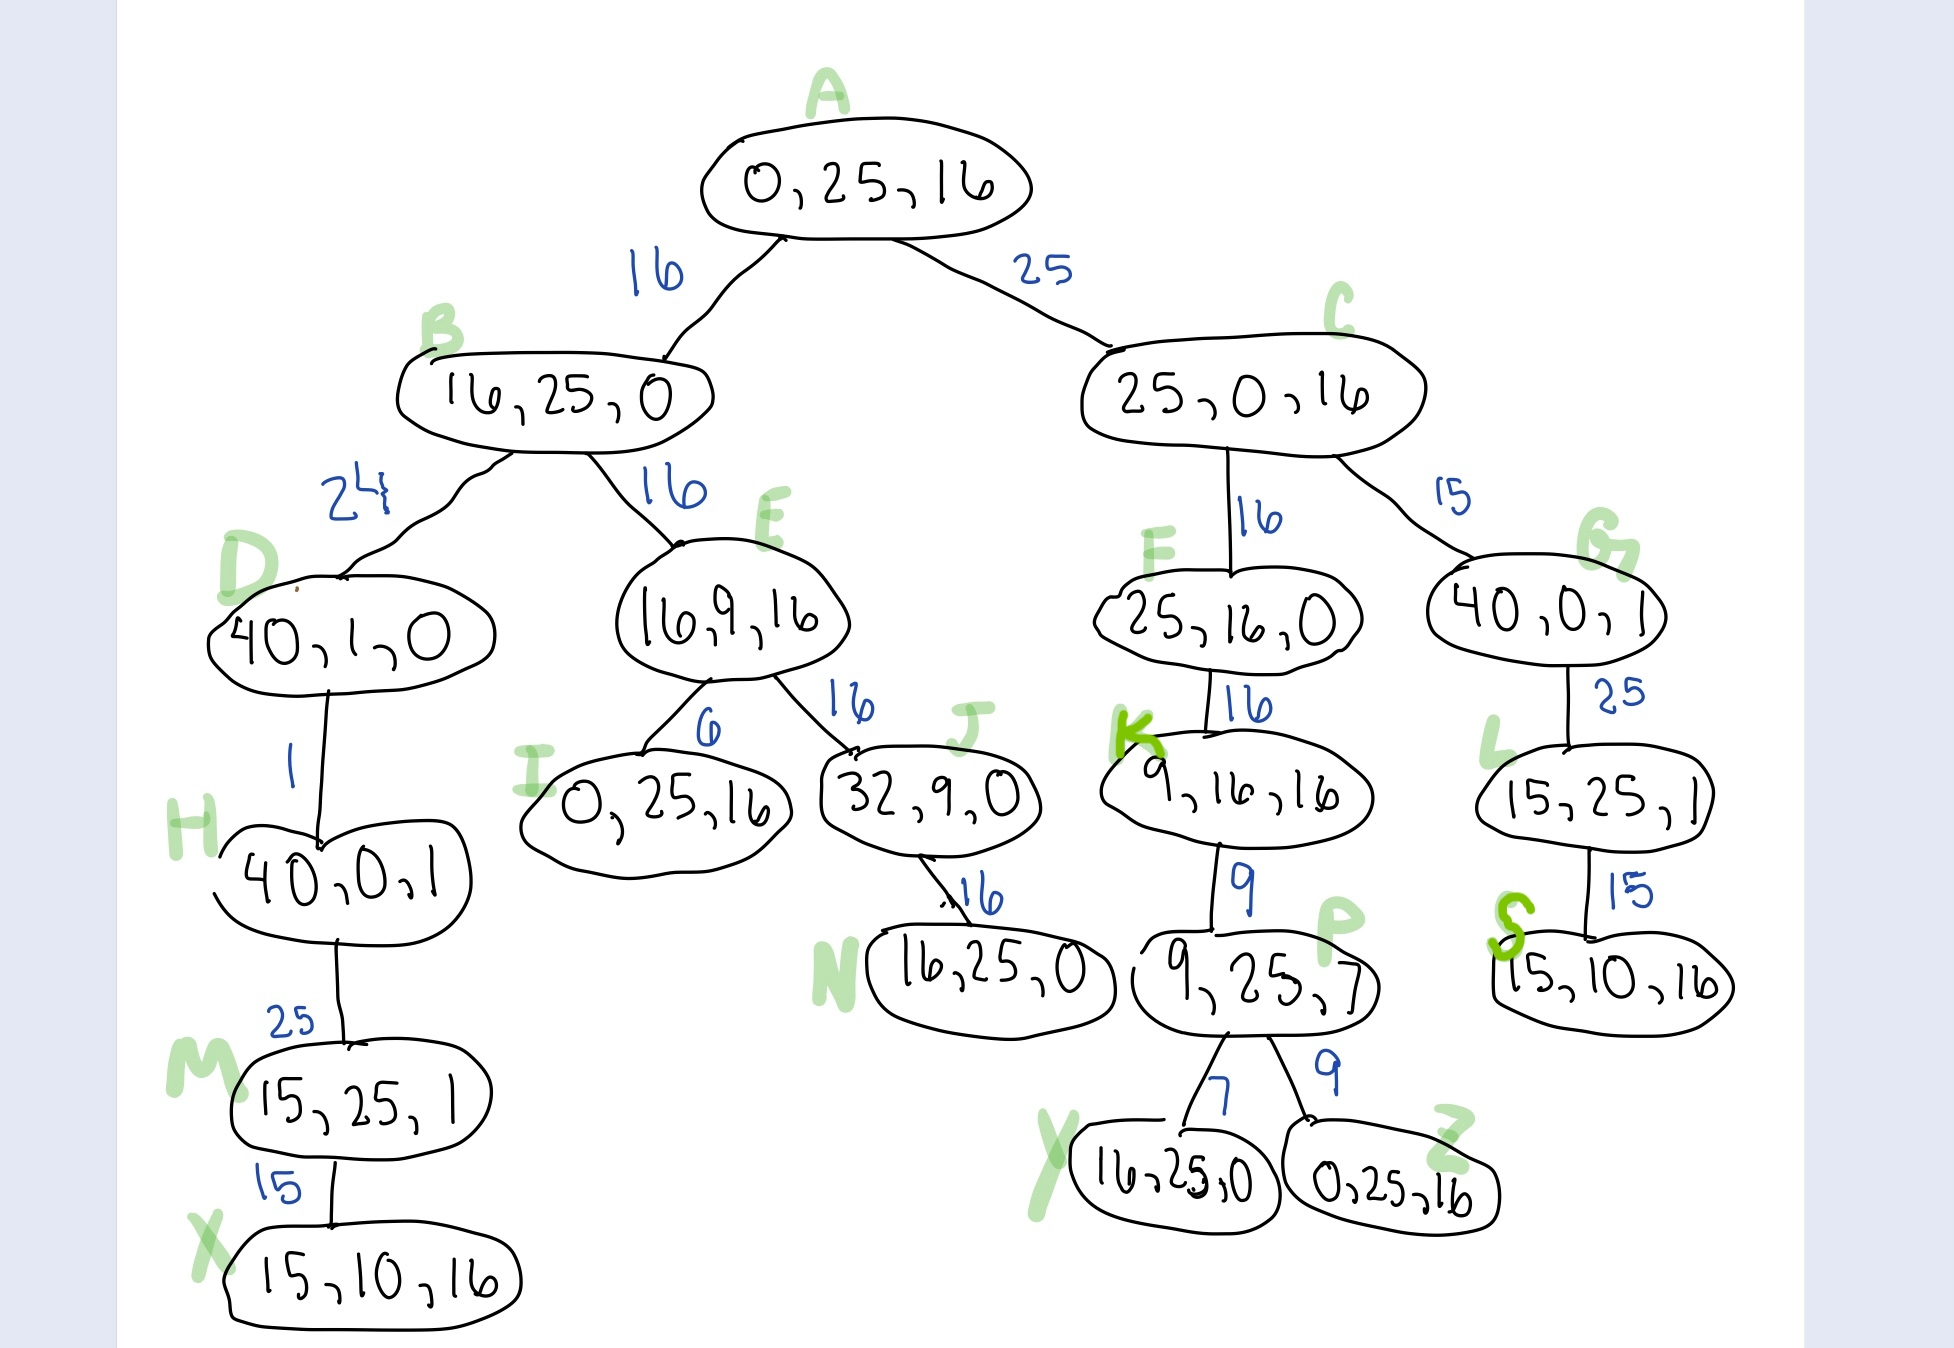 A
0,25,16
16
25
B
16,25,0
C
25,0,16
24
16
16
15
D
40,1,0
E
16,9,16
F
25,16,0
G
40,0,1
1
6
16
16
25
H
40,0,1
I
0,25,16
J
32,9,0
K
9,16,16
L
15,25,1
25
16
9
15
M
15,25,1
N
16,25,0
P
9,25,7
S
15,10,16
15
7
9
X
15,10,16
Y
16,25,0
Z
0,25,16